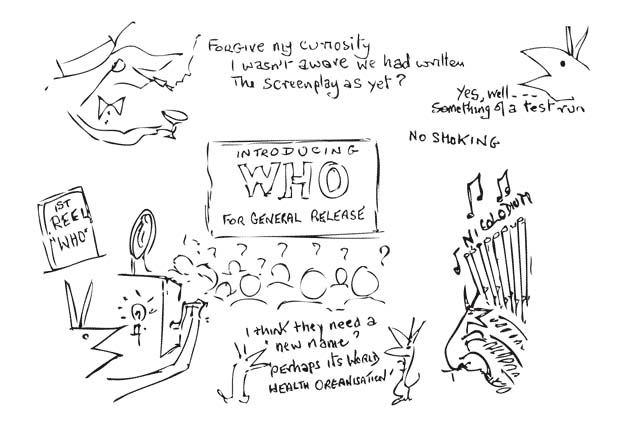 FORGIVE my CURIOSITY
I WASN'T AWARE WE HAD WRITTEN
THE SCREENPLAY AS YET?
Yes, well ---
Something of a test run
NO SMOKING
INTRODUCING
WHO
FOR GENERAL RELEASE
1ST
REEL
"WHO"
? ? ? ? ? ?
NICOLODIUM
I think they need a
new name?
perhaps its WORLD
HEALTH OREANISATION'